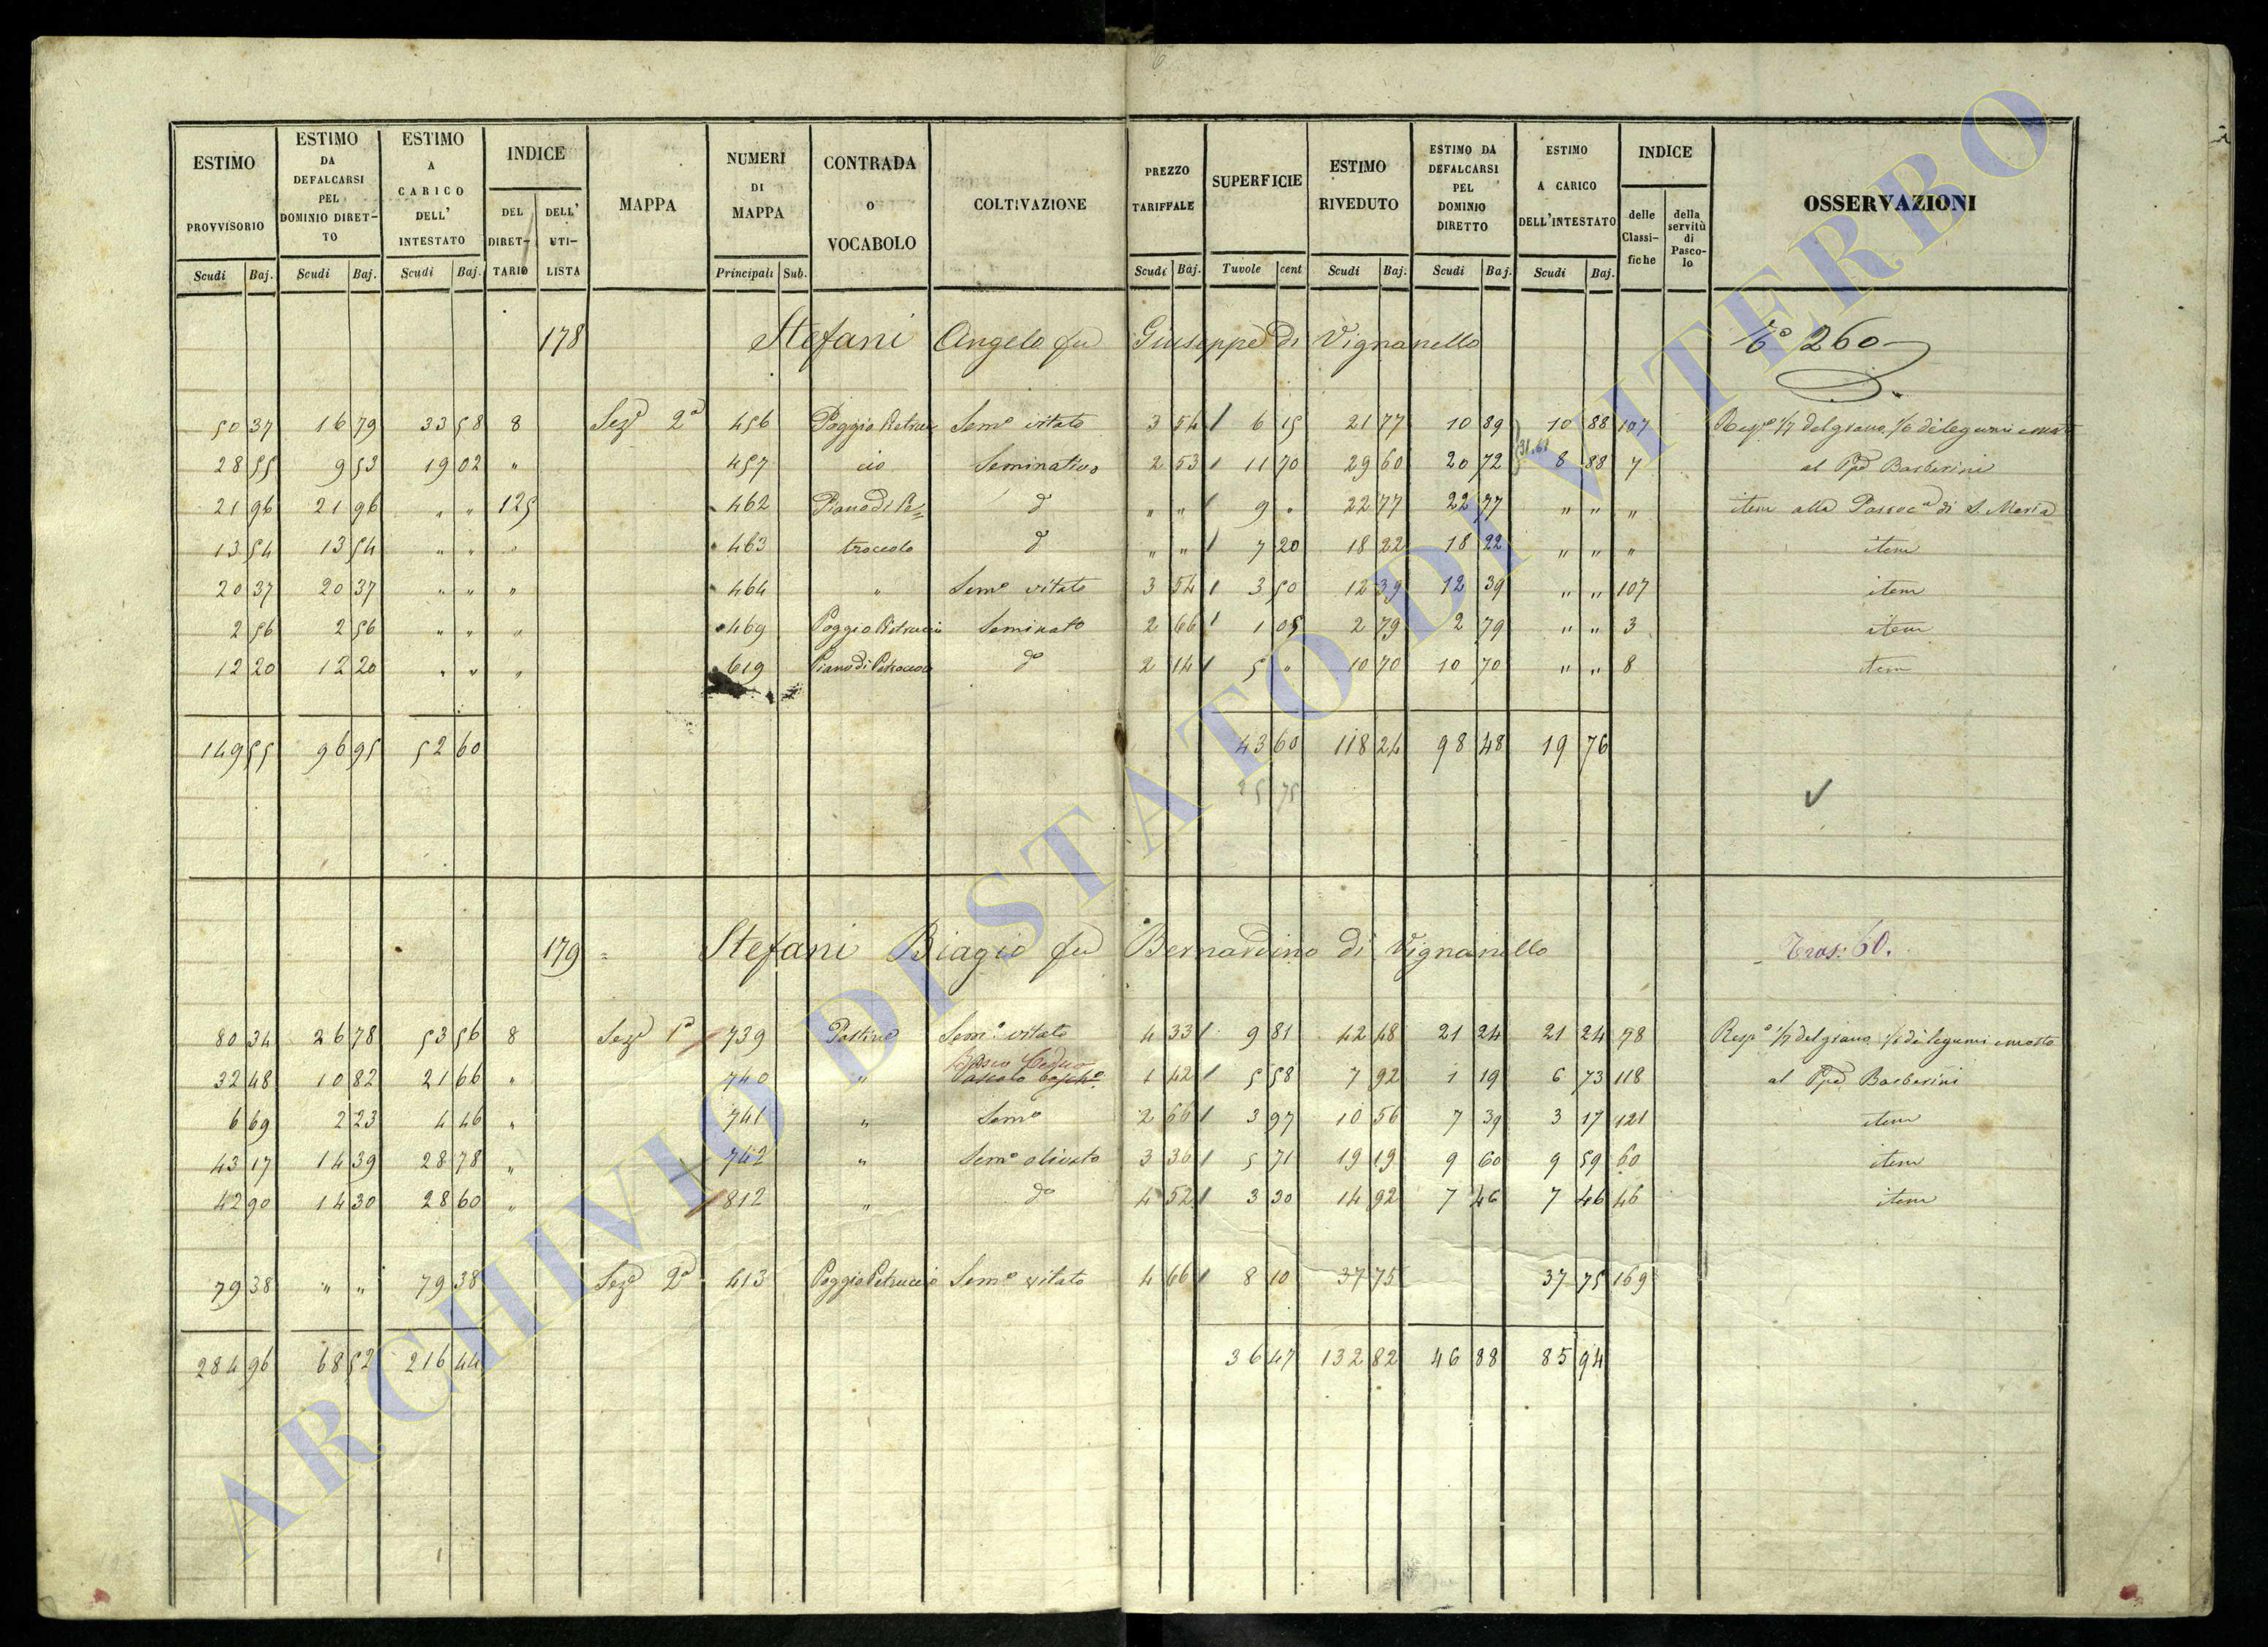 ESTIMO PROVVISORIO Scudi Baj. | ESTIMO DA DEFALCARSI PEL DOMINIO DIRETTO Scudi Baj. | ESTIMO A CARICO DELL' INTESTATO Scudi Baj. | INDICE DEL DIRETTARIO | DELL' UTILISTA | MAPPA | NUMERI DI MAPPA Principali Sub. | CONTRADA O VOCABOLO | COLTIVAZIONE | PREZZO TARIFFALE Scudi Baj. | SUPERFICIE Tavole cent | ESTIMO RIVEDUTO Scudi Baj. | ESTIMO DA DEFALCARSI PEL DOMINIO DIRETTO Scudi Baj. | ESTIMO A CARICO DELL'INTESTATO Scudi Baj. | INDICE delle Classifiche | della servitù di Pascolo | OSSERVAZIONI
178 Stefani Angelo fu Giuseppe di Vignanello 260
50 37 16 79 33 58 8 Sezᵉ 2ª 456 Poggio Pietruc Semᵒ vitato 3 54 / 6 15 21 77 10 89 10 88 107 Respᵒ 1/7 del grano 1/6 di legumi e mosto
31.61
28 55 9 53 19 02 " 457 cio Seminativo 2 53 / 11 70 29 60 20 72 8 88 7 al Ppe Barberini
21 96 21 96 " " 125 462 Piano di Pe= dᵒ " " / 9 " 22 77 22 77 " " " item alla Parrocª di S. Maria
13 54 13 54 " " " 463 troccolo dᵒ " " / 7 20 18 22 18 22 " " " item
20 37 20 37 " " " 464 " Semᵒ vitato 3 54 / 3 50 12 39 12 39 " " 107 item
2 56 2 56 " " " 469 Poggio Pietruccio Seminatᵒ 2 66 / 1 05 2 79 2 79 " " 3 item
12 20 12 20 " " " 619 Piano di Petroccolo dᵒ 2 14 / 5 " 10 70 10 70 " " 8 item
149 55 96 95 52 60 43 60 118 24 98 48 19 76
25 75 ✓
179 = Stefani Biagio fu Bernardino di Vignanello Tras: 60.
80 34 26 78 53 56 8 Sezᵉ 1ª 739 Pastine Semᵒ vitato 4 33 / 9 81 42 48 21 24 21 24 78 Respᵒ 1/7 del grano 1/6 di legumi e mosto
Bosco Ceduo
32 48 10 82 21 66 " 740 " Pascolo boschᵒ 1 42 / 5 58 7 92 1 19 6 73 118 al Ppe Barberini
6 69 2 23 4 46 " 741 " Semᵒ 2 66 / 3 97 10 56 7 39 3 17 121 item
43 17 14 39 28 78 " 742 " Semᵒ olivato 3 36 / 5 71 19 19 9 60 9 59 60 item
42 90 14 30 28 60 " 812 " dᵒ 4 52 / 3 30 14 92 7 46 7 46 46 item
79 38 " " 79 38 Sezᵉ 2ª 413 Poggio Petruccio Semᵒ vitato 4 66 / 8 10 37 75 37 75 169
284 96 68 52 216 44 36 47 132 82 46 88 85 94
ARCHIVIO DI STATO DI VITERBO